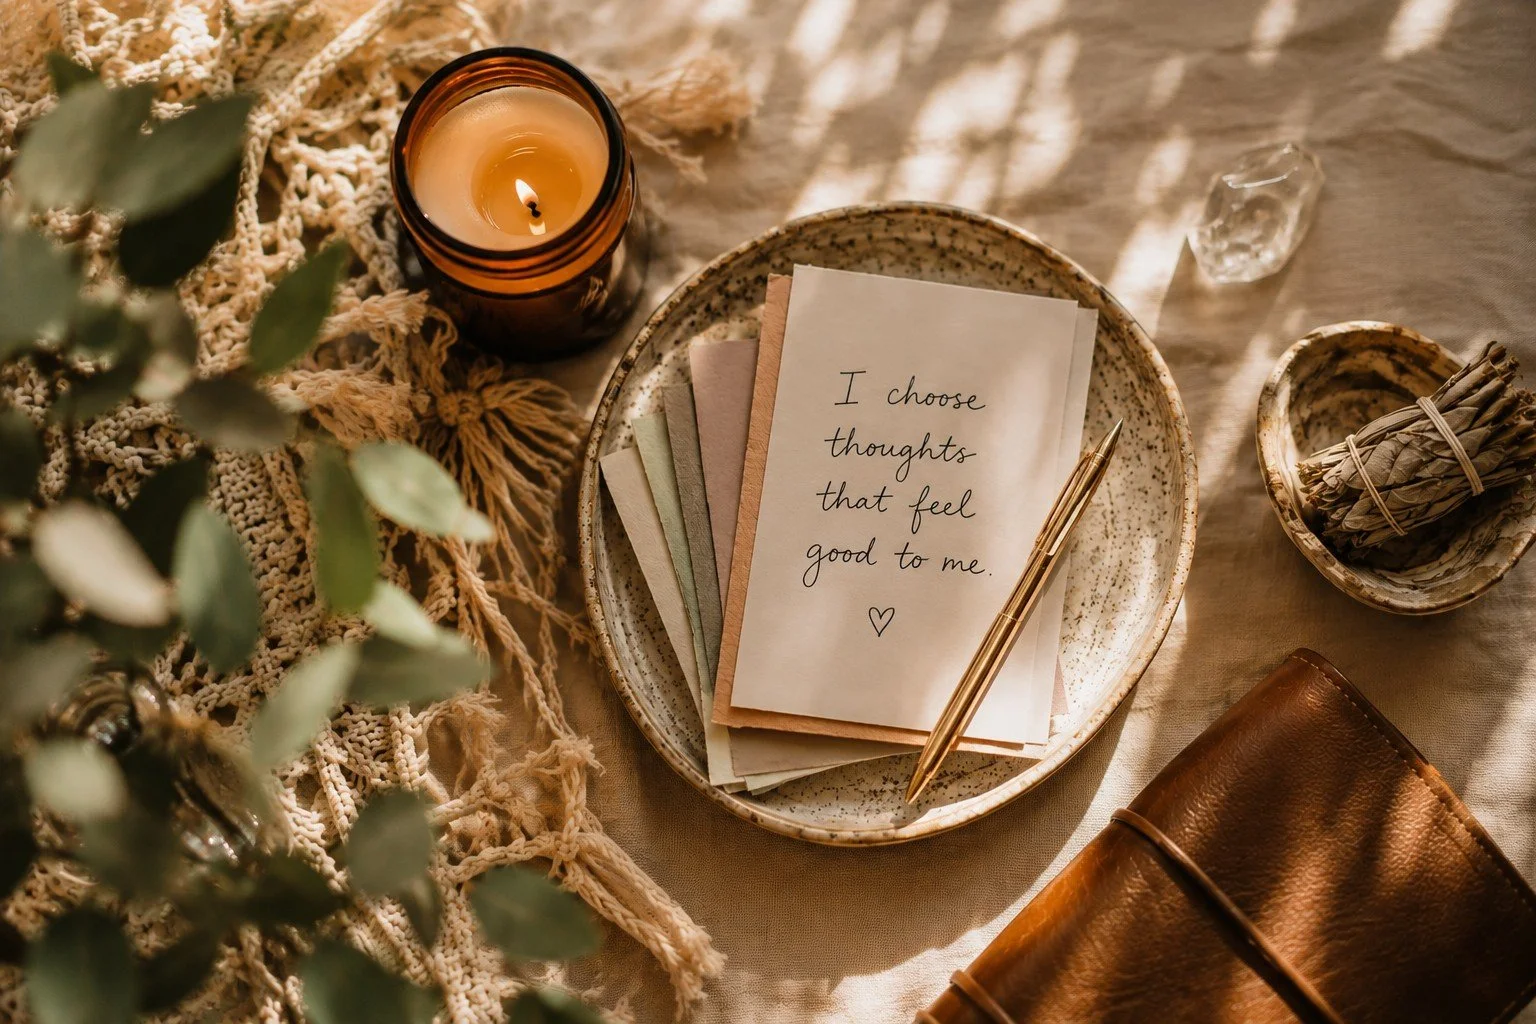 I choose
thoughts
that feel
good to me.